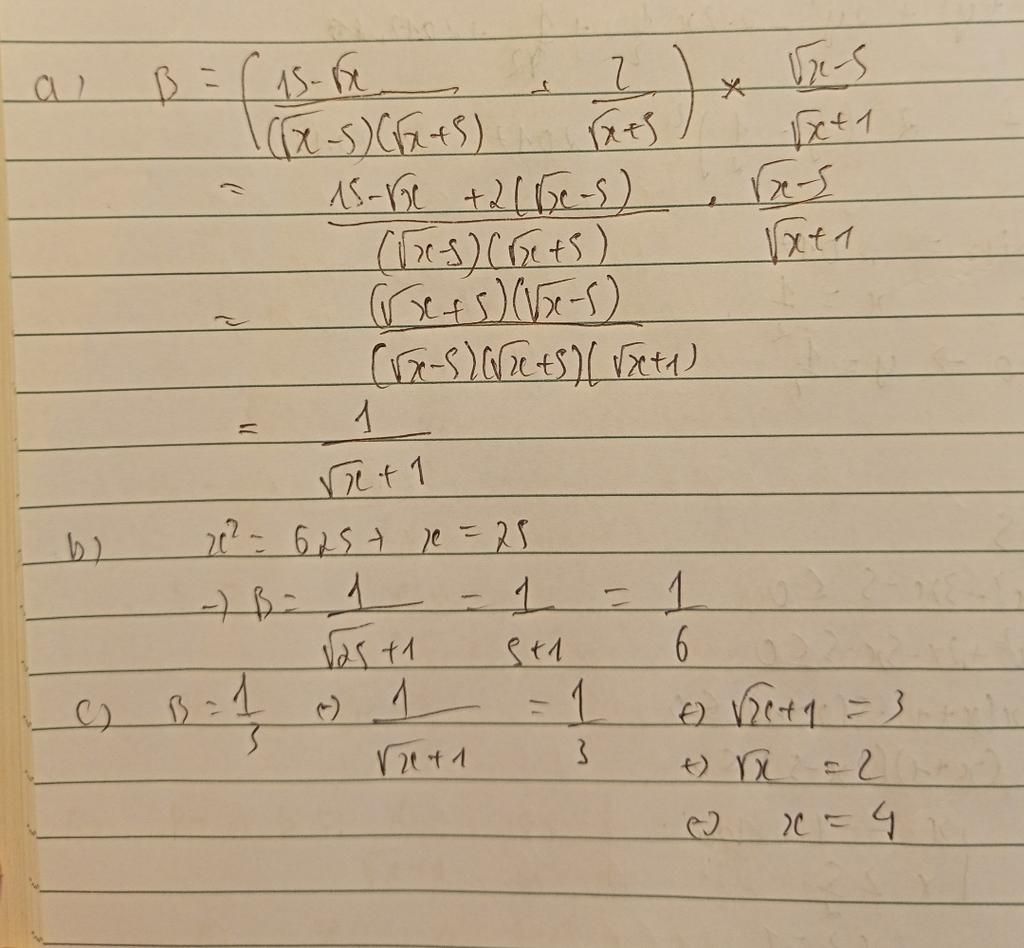 a) B = ( (15-√x)/((√x-5)(√x+5)) + 2/(√x+5) ) × (√x-5)/(√x+1)
= (15-√x +2(√x-5))/((√x-5)(√x+5)) . (√x-5)/(√x+1)
= ((√x+5)(√x-5))/((√x-5)(√x+5)(√x+1))
= 1/(√x+1)
b) x² = 625 → x = 25
→ B = 1/(√25+1) = 1/(5+1) = 1/6
c) B = 1/3 ↔ 1/(√x+1) = 1/3 ↔ √x+1 = 3
↔ √x = 2
↔ x = 4